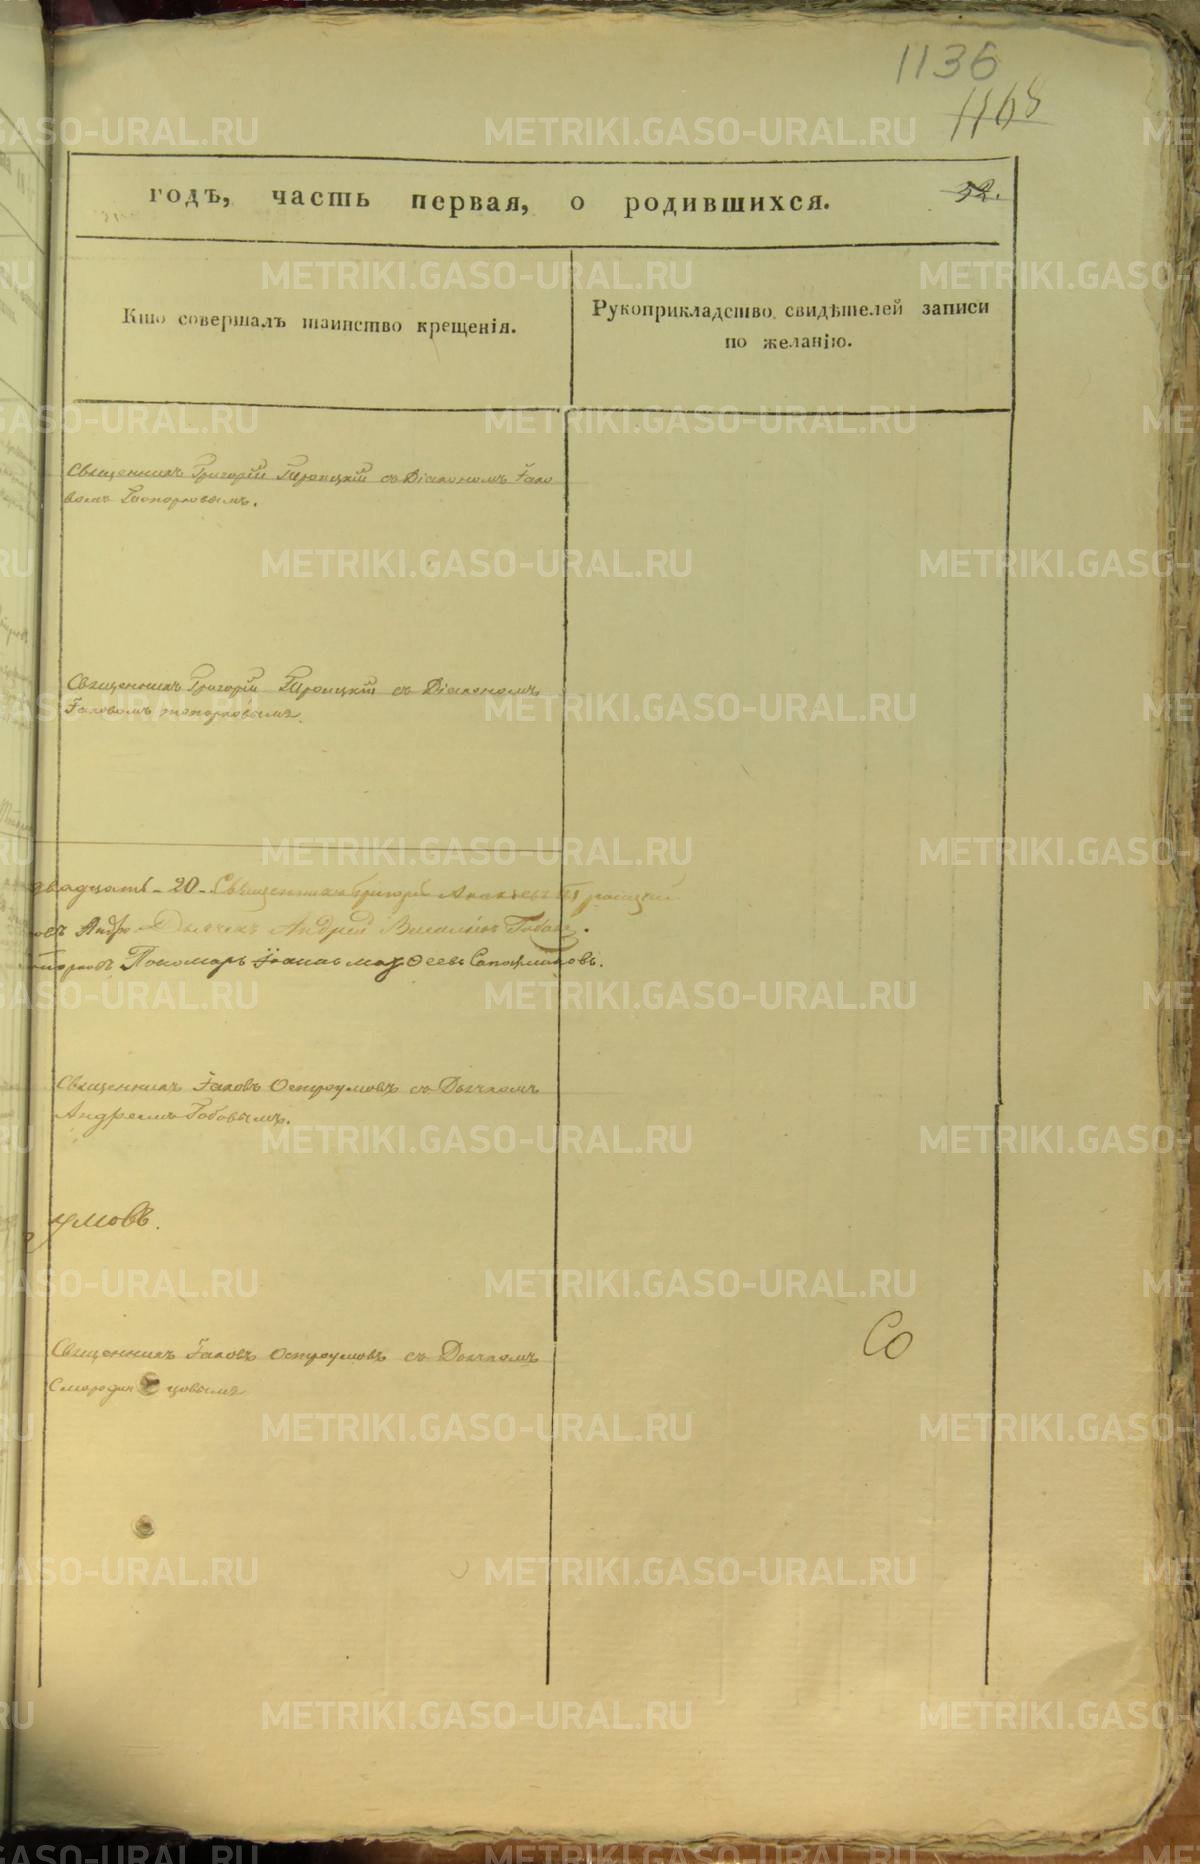 1136
1168
годъ, часть первая, о родившихся. 52.
Кто совершалъ таинство крещенія.
Рукоприкладство свидѣтелей записи
по желанію.
Священникъ Григорій Троицкій съ Діакономъ Іако
вомъ Топорковымъ.
Священникъ Григорій Троицкій съ Діакономъ
Іаковомъ топорковымъ.
двадцать - 20 - Священникъ Григорій Троицкій
Андре Дьячекъ Андрей Гобовъ.
Пономарь Сапожниковъ.
Священникъ Іаковъ Остроумовъ съ Дьячкомъ
Андреемъ Гобовымъ.
умовъ.
Священникъ Іаковъ Остроумовъ съ Дьячкомъ
Смородинцовымъ
Со
METRIKI.GASO-URAL.RU